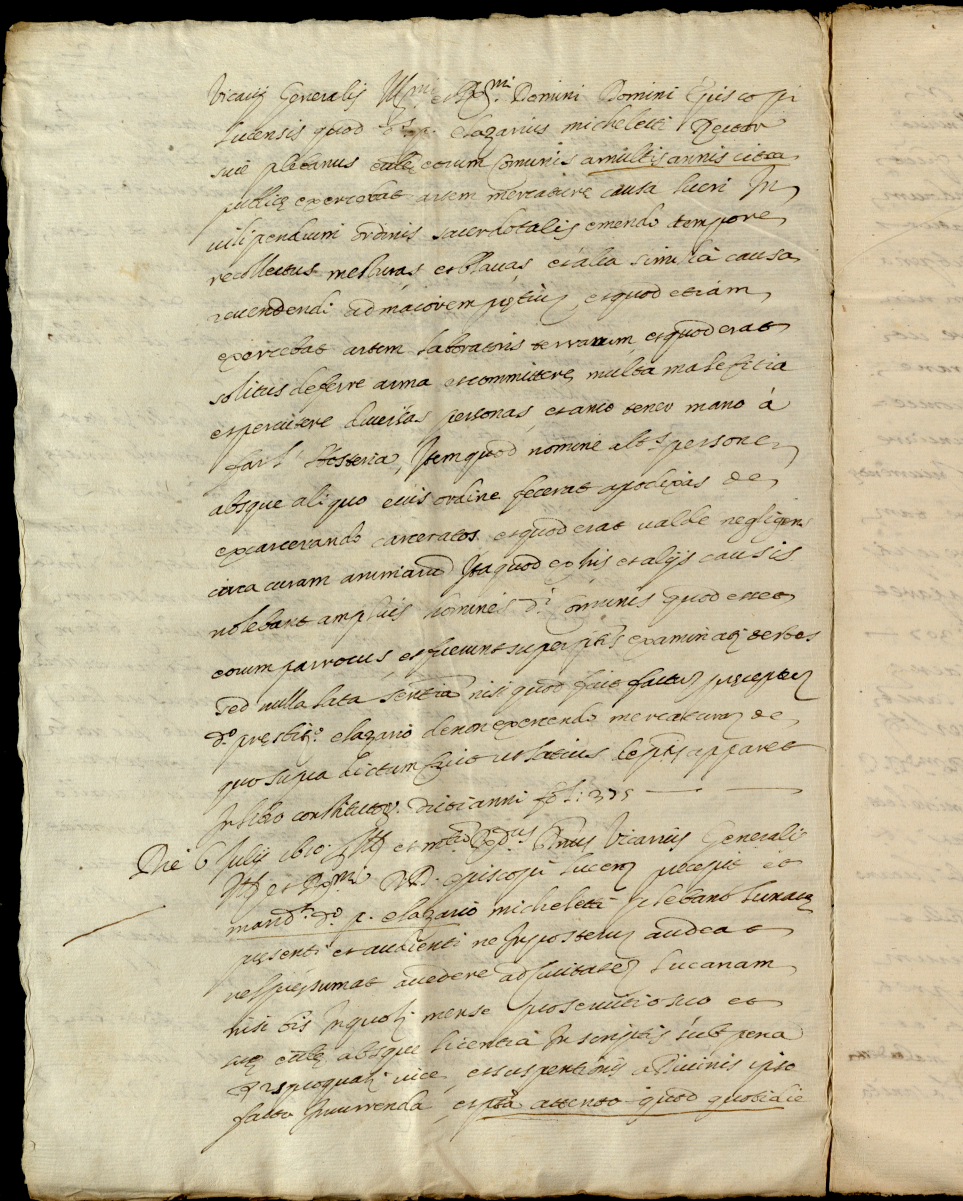 Vicarij Generalis Ill.mi et R.mi Domini Domini Episcopi
lucensis quod p. elazarius micheletti Rector
sive plebanus ecclę eorum Cōmunis a multis annis citra
publicę exercebat artem mercature causa lucri In
vilipendium ordinis sacerdotalis emendo tempore
recollectus messuras et blavas, et alia similia causa
revendendi ad maiorem pretiū, et quod etiam
exercebat artem laboratoris terrarum et quod erat
solitus deferre arma et committere multa maleficia
et percutere diversas personas, et anco tener mano à
far l' Hosteria, Itemquod nomine alt.s persone
absque aliquo eius ordine fecerat apodixas de
excarcerando carceratos et quod erat valde negligens
circa curam animarū Itaquod ex his et alijs causis
nolebant amplius homines d.i Cōmunis quod esset
eorum parrocus, et fuerunt super p̄tis examinati testes
sed nulla lata sentia nisi quod fuit factū pręceptū
d.o pręsbit.o elazario de non exercendo mercaturā de
quo supra dictum fuit ut latius de p̄tis apparet
In libro constitutor. dicti anni fol: 375
Die 6 Julij 1610. Ill. et R.dus Dnus Vicarius Generalis
Ill. et R.mi D.D. episcopi lucen̄ precepit et
mand.t d.o p. elazario micheletti plebano lunatę
pręsenti et audienti ne In posterū audeat
vel pręsumat accedere ad Civitatē Lucanam
nisi bis In quol. mense pro servitio suo et
suę ecclę absque licentia In scriptis sub pena
25 pro qual. vice, et suspentionis a Divinis ipso
facto Incurrenda, et p̄tā attento quod quotidie